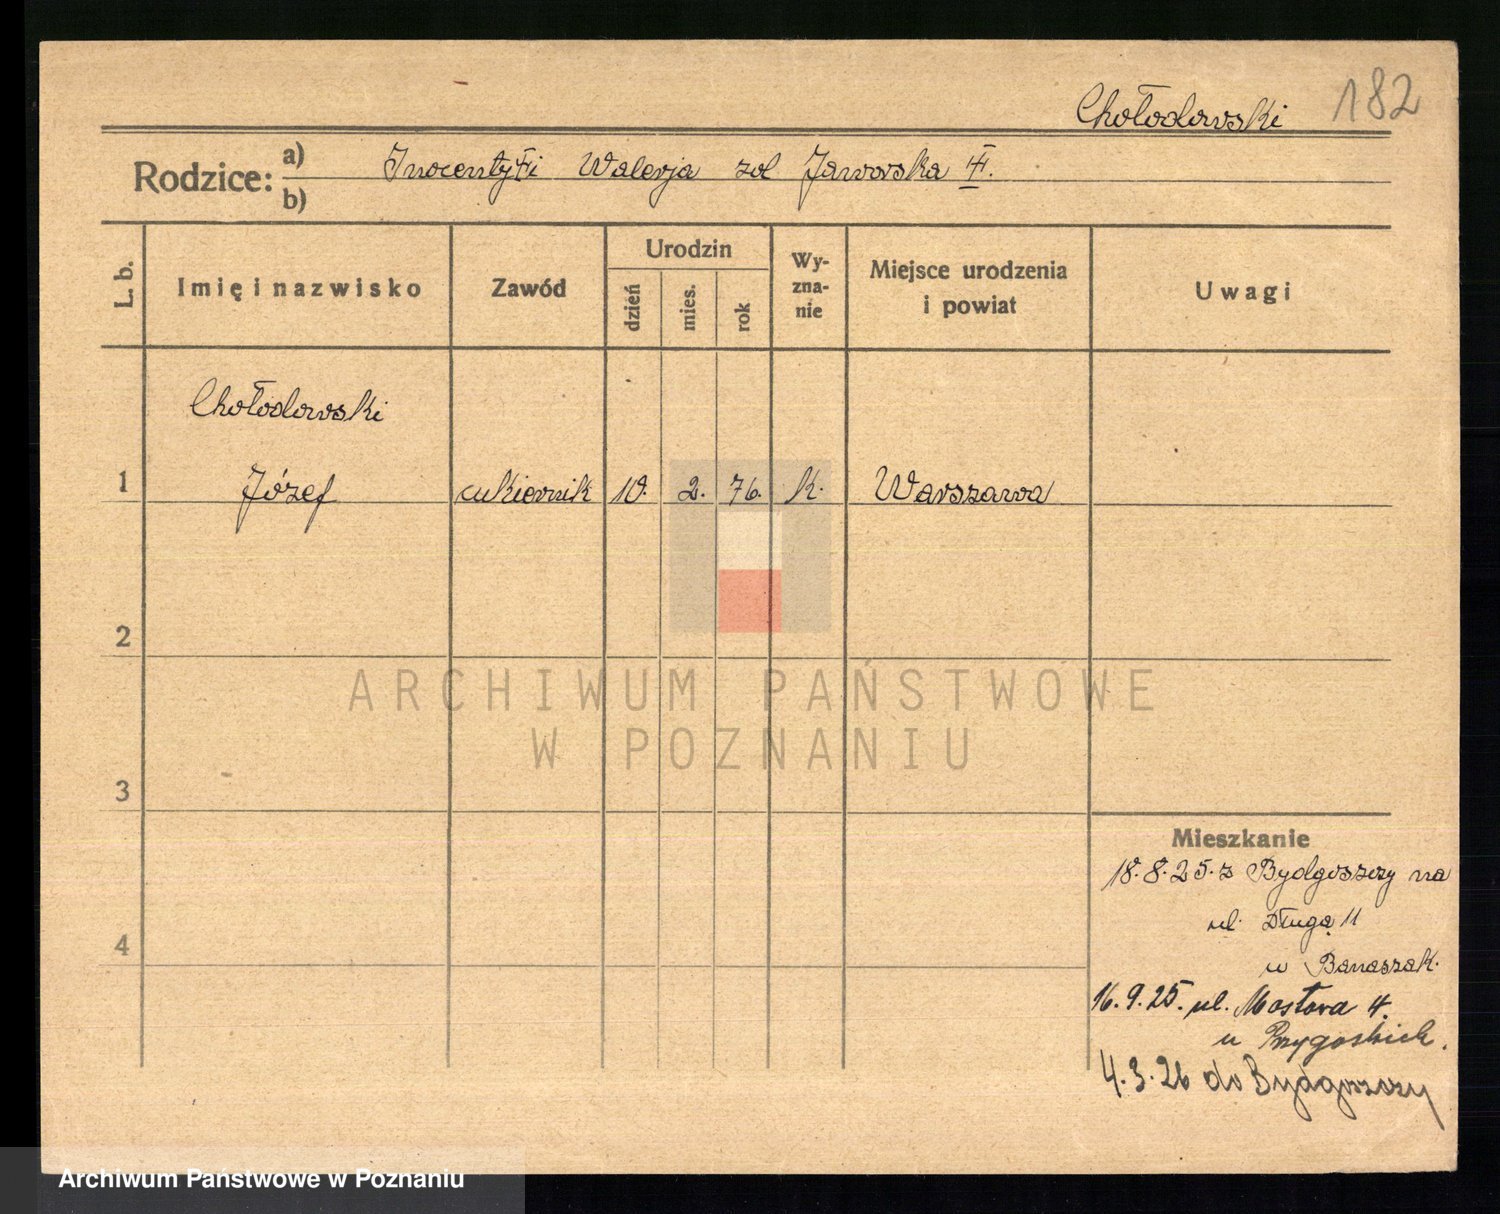 182
Chołodowski
Rodzice: a) Inocenty i Walerja zol Jaworska
b)
L. b. Imię i nazwisko Zawód Urodzin dzień mies. rok Wyznanie Miejsce urodzenia i powiat Uwagi
Chołodowski
1 Józef cukiernik 10. 2. 76. k. Warszawa
2
ARCHIWUM PAŃSTWOWE
W POZNANIU
3
Mieszkanie
18.8.25. z Bydgoszczy na
ul. Długą 11
u Banaszak.
4
16.9.25. ul. Mostova 4.
u
4.3.26 do Bydgoszczy
Archiwum Państwowe w Poznaniu